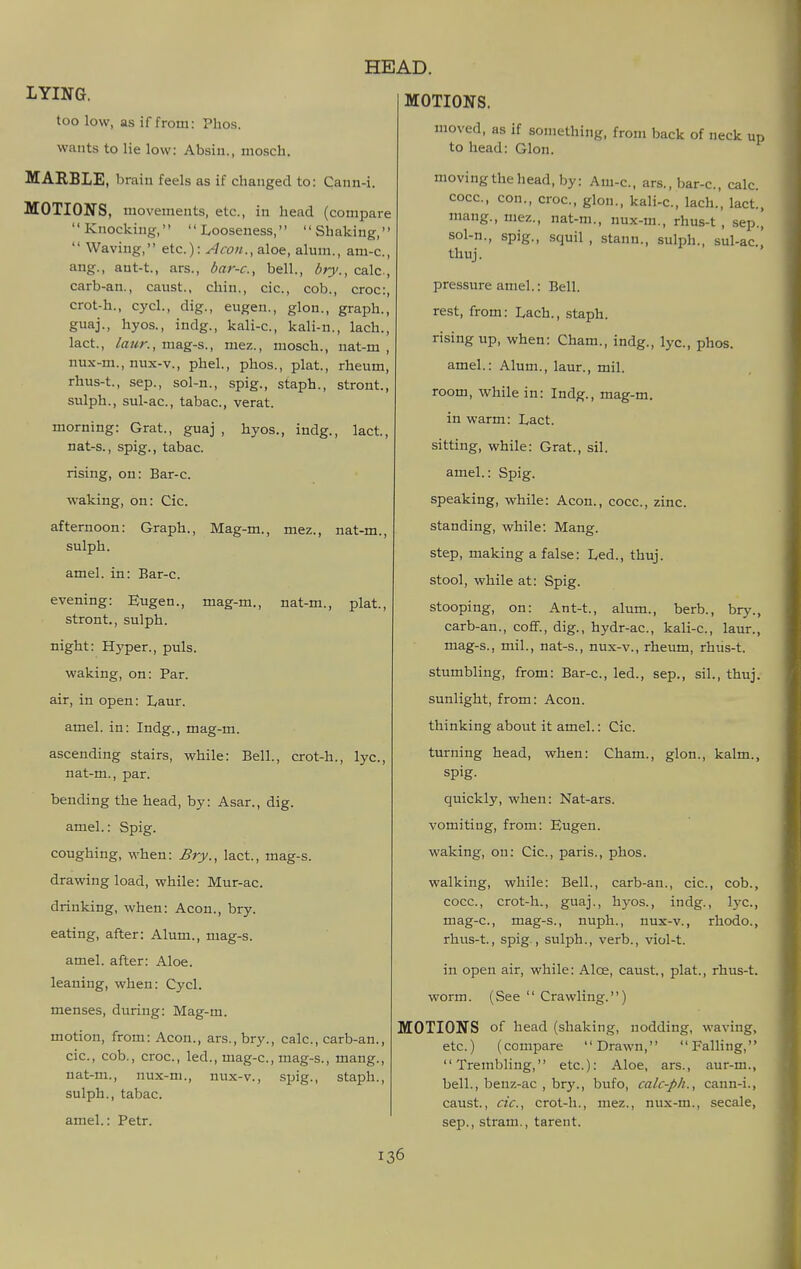 HEAD.
LYING.
too low, as if from: Phos.
wants to lie low: Absin., mosch.
MARBLE, brain feels as if changed to: Cann-i.
MOTIONS, movements, etc., in head (compare
“Knocking,” “Looseness,” “Shaking,”
“Waving,” etc.): Acon., aloe, alum., am-c.,
ang., ant-t., ars., bar-c., bell., bry., calc.,
carb-an., caust., chin., cic., cob., croc:,
crot-h., cycl., dig., eugen., glon., graph.,
guaj., hyos., indg., kali-c., kali-n., lach.,
lact., laur., mag-s., mez., mosch., nat-m ,
nux-m., nux-v., phel., phos., plat., rheum,
rhus-t., sep., sol-n., spig., staph., stront.,
sulph., sul-ac., tabac., verat.
morning: Grat., guaj , hyos., indg., lact.,
nat-s., spig., tabac.
rising, on: Bar-c.
waking, on: Cic.
afternoon: Graph., Mag-m., mez., nat-m.,
sulph.
amel. in: Bar-c.
evening: Eugen., mag-m., nat-m., plat.,
stront., sulph.
night: Hyper., puls.
waking, on: Par.
air, in open: Laur.
amel. in: Indg., mag-m.
ascending stairs, while: Bell., crot-h., lyc.,
nat-m., par.
bending the head, by: Asar., dig.
amel.: Spig.
coughing, when: Bry., lact., mag-s.
drawing load, while: Mur-ac.
drinking, when: Acon., bry.
eating, after: Alum., mag-s.
amel. after: Aloe.
leaning, when: Cycl.
menses, during: Mag-m.
motion, from: Acon., ars., bry., calc., carb-an.,
cic., cob., croc., led., mag-c., mag-s., mang.,
nat-m., nux-m., nux-v., spig., staph.,
sulph., tabac.
amel.: Petr.
MOTIONS.
moved, as if something, from back of neck up
to head: Glon.
moving the head, by: Am-c., ars., bar-c., calc.
cocc., con., croc., glon., kali-c., lach., lact.,
mang., mez., nat-m., nux-m., rhus-t , sep.,
sol-n., spig., squil , stann., sulph., sul-ac.,
thuj.
pressure amel.: Bell.
rest, from: Lach., staph.
rising up, when: Cham., indg., lyc., phos.
amel.: Alum., laur., mil.
room, while in: Indg., mag-m.
in warm: Lact.
sitting, while: Grat., sil.
amel.: Spig.
speaking, while: Acon., cocc., zinc.
standing, while: Mang.
step, making a false: Led., thuj.
stool, while at: Spig.
stooping, on: Ant-t., alum., berb., bry.,
carb-an., coff., dig., hydr-ac., kali-c., laur.,
mag-s., mil., nat-s., nux-v., rheum, rhus-t.
stumbling, from: Bar-c., led., sep., sil., thuj.
sunlight, from: Acon.
thinking about it amel.: Cic.
turning head, when: Cham., glon., kalm.,
spig.
quickly, when: Nat-ars.
vomiting, from: Eugen.
waking, on: Cic., paris., phos.
walking, while: Bell., carb-an., cic., cob.,
cocc., crot-h., guaj., hyos., indg., lyc.,
mag-c., mag-s., nuph., nux-v., rhodo.,
rhus-t., spig , sulph., verb., viol-t.
in open air, while: Aloe, caust., plat., rhus-t.
worm. (See “ Crawling.”)
MOTIONS of head (shaking, nodding, waving,
etc.) (compare “Drawn,” “Falling,”
“Trembling,” etc.): Aloe, ars., aur-m.,
bell., benz-ac , bry., bufo, calc-ph., cann-i.,
caust., cic., crot-h., mez., nux-m., secale,
sep., stram., tarent.
136